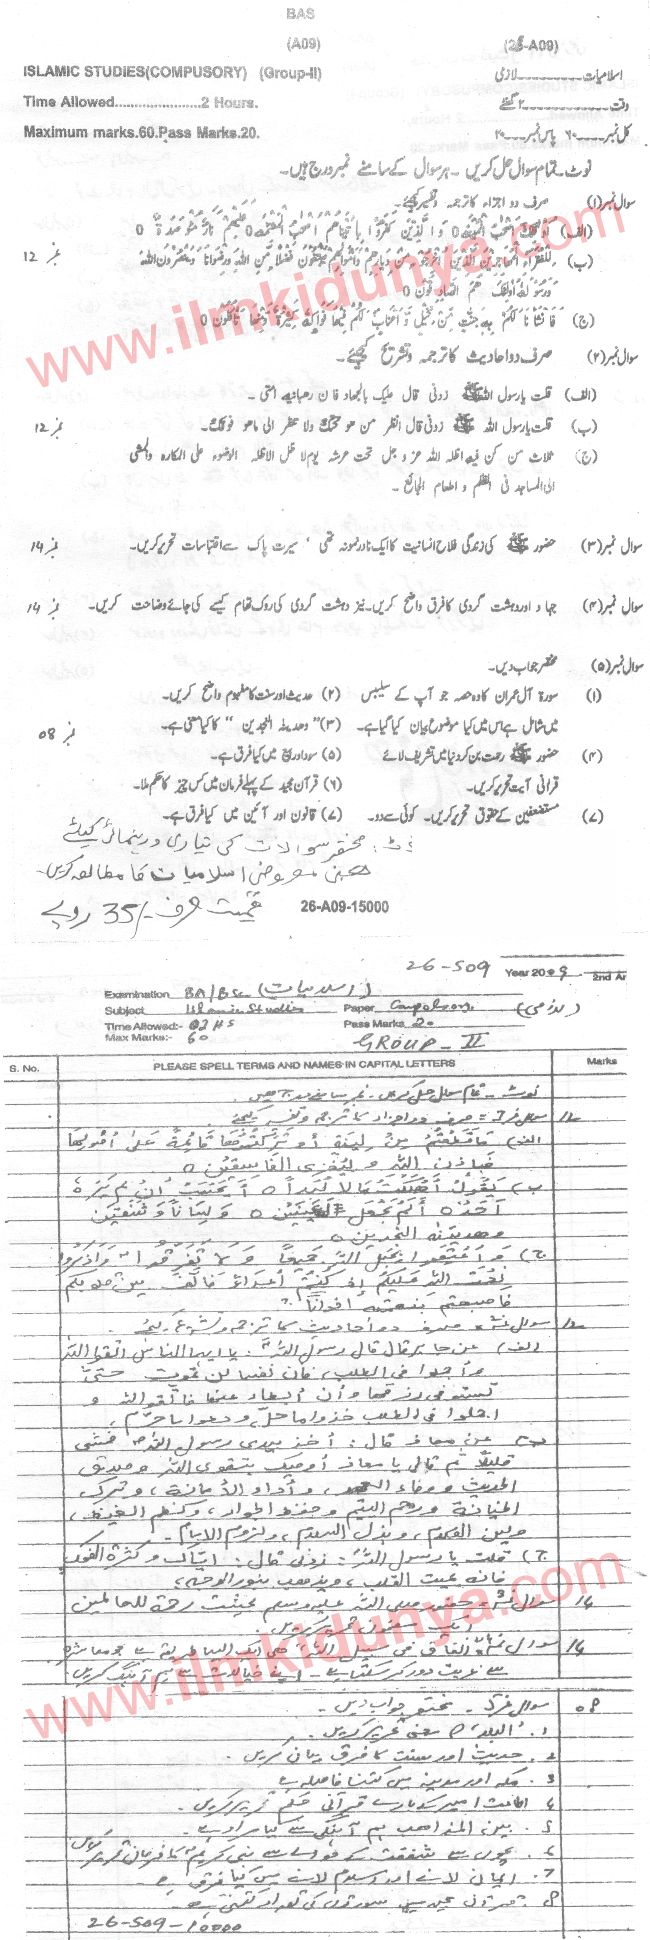 BAS
(A09)
(26-A09)
ISLAMIC STUDIES(COMPUSORY) (Group-II)
اسلامیات ............ لازمی
Time Allowed......................2 Hours.
وقت ............ ۲ گھنٹے
Maximum marks.60.Pass Marks.20.
کل نمبر ۶۰ پاس نمبر ۲۰
نوٹ۔ تمام سوال حل کریں ۔ ہر سوال کے سامنے نمبر درج ہیں۔
سوال نمبر(۱) صرف دو اجزاء کا ترجمہ و تفسیر کیجیے۔
(الف)
(ب) نمبر 12
(ج)
سوال نمبر(۲) صرف دو احادیث کا ترجمہ و تشریح کیجیے۔
(الف) قلت یا رسول اللہ ﷺ زدنی قال علیک بالجهاد فان رهبانیة امتی ۔
(ب) قلت یا رسول اللہ ﷺ زدنی قال انظر من هو تحتک ولا تنظر الی ماهو فوقک۔ نمبر 12
(ج) ثلاث من کن فیہ اظلہ اللہ عز و جل تحت عرشہ یوم لا ظل الا ظلہ الوضوء علی المکارہ والمشی
الی المساجد فی الظلم و اطعام الجائع۔
سوال نمبر(۳) حضور ﷺ کی زندگی فلاح انسانیت کا ایک نادر نمونہ تھی ، سیرت پاک سے اقتباسات تحریر کریں۔ نمبر 14
سوال نمبر(۴) جہاد اور دہشت گردی کا فرق واضح کریں۔ نیز دہشت گردی کی روک تھام کیسے کی جائے وضاحت کریں۔ نمبر 14
سوال نمبر(۵) مختصر جواب دیں۔
(۱) سورۃ آل عمران کا وہ حصہ جو آپ کے سلیبس (۲) حدیث اور سنت کا مفہوم واضح کریں۔
میں شامل ہے اس میں کیا موضوع بیان کیا گیا ہے۔ (۳) "وهدینہ النجدین" کا کیا معنی ہے۔ نمبر 08
(۴) حضور ﷺ رحمت بن کر دنیا میں تشریف لائے (۵) سود اور بیع میں کیا فرق ہے۔
قرآنی آیت تحریر کریں۔ (۶) قرآن مجید کے پہلے فرمان میں کس چیز کا حکم ملا۔
(۷) مستضعفین کے حقوق تحریر کریں۔ کوئی سے دو۔ (۷) قانون اور آئین میں کیا فرق ہے۔
نوٹ: مختصر سوالات کی تیاری و رہنمائی کیلئے
معروضی اسلامیات کا مطالعہ کریں۔
قیمت صرف -/35 روپے
26-A09-15000
26-S09 Year 2009 2nd An
Examination BA/BSc (اسلامیات)
Subject Islamic Studies Paper Compulsory. (لازمی)
Time Allowed:- 02 HS Pass Marks 20
Max Marks:- 60 GROUP - II
S. No. PLEASE SPELL TERMS AND NAMES IN CAPITAL LETTERS Marks
نوٹ:- تمام سوال حل کریں۔ نمبر سامنے درج ہیں۔
سوال نمبر 1= صرف دو اجزاء کا ترجمہ و تفسیر کیجیے۔ 12
الف) مَا قَطَعْتُمْ مِنْ لِينَةٍ أَوْ تَرَكْتُمُوهَا قَائِمَةً عَلَىٰ أُصُولِهَا
فَبِإِذْنِ اللَّهِ وَلِيُخْزِيَ الْفَاسِقِينَ ٥
ب) يَقُولُ أَهْلَكْتُ مَالًا لُبَدًا ٥ أَيَحْسَبُ أَنْ لَمْ يَرَهُ
أَحَدٌ ٥ أَلَمْ نَجْعَلْ لَهُ عَيْنَيْنِ ٥ وَلِسَانًا وَشَفَتَيْنِ
وهدينه النجدين ٥
ج) وَاعْتَصِمُوا بِحَبْلِ اللَّهِ جَمِيعًا وَلَا تَفَرَّقُوا وَاذْكُرُوا
نِعْمَتَ اللَّهِ عَلَيْكُمْ إِذْ كُنْتُمْ أَعْدَاءً فَأَلَّفَ بَيْنَ قلوبكم
فَأَصْبَحْتُمْ بِنِعْمَتِهِ إِخْوَانًا
سوال نمبر 2 صرف دو احادیث کا ترجمہ و تشریح کریں۔ 12
الف) عن جابر قال قال رسول اللہ: یا ایها الناس اتقوا اللہ
و اجملوا فی الطلب، فان نفسا لن تموت حتی
تستوفی رزقها وأن أبطاء عنها فاتقوا اللہ و
اجملوا فی الطلب خذوا ما حل، و دعوا ما حرم،
ب) عن معاذ قال: أخذ بیدی رسول اللہ فمشی
قلیلا ثم قال یا معاذ أوصیک بتقوی اللہ و صدق
الحدیث و وفاء العهد، و أداء الأمانة، و ترک
الخیانة و رحم الیتیم و حفظ الجوار، و کظم الغیظ،
و لین الکلام، و بذل السلام، و لزوم الامام۔
ج) قلت یا رسول اللہ: زدنی قال: إیاک و کثرة الضحک
فانه یمیت القلب، و یذهب بنور الوجه،
سوال نمبر 3 حضور صلی اللہ علیہ وسلم بحیثیت رحمة للعالمین 14
14
سے غربت دور کر سکتا ہے۔
سوال نمبر 5۔ مختصر جواب دیں۔ 08
1. البلد کا معنی تحریر کریں۔
2. حدیث اور سنت کا فرق بیان کریں۔
3. مکہ اور مدینہ میں کتنا فاصلہ ہے
4. اطاعت امیر کے بارے قرآنی حکم تحریر کریں۔
5. بین المذاہب ہم آہنگی سے کیا مراد ہے۔
6. بچوں سے شفقت کے حوالے سے نبی کریم کا فرمان تحریر کریں
7. ایمان لانے اور اسلام لانے میں کیا فرق ہے
8. قرآن مجید میں سورتوں کی تعداد کتنی ہے۔
26-S09-10000
www.ilmkidunya.com
www.ilmkidunya.com